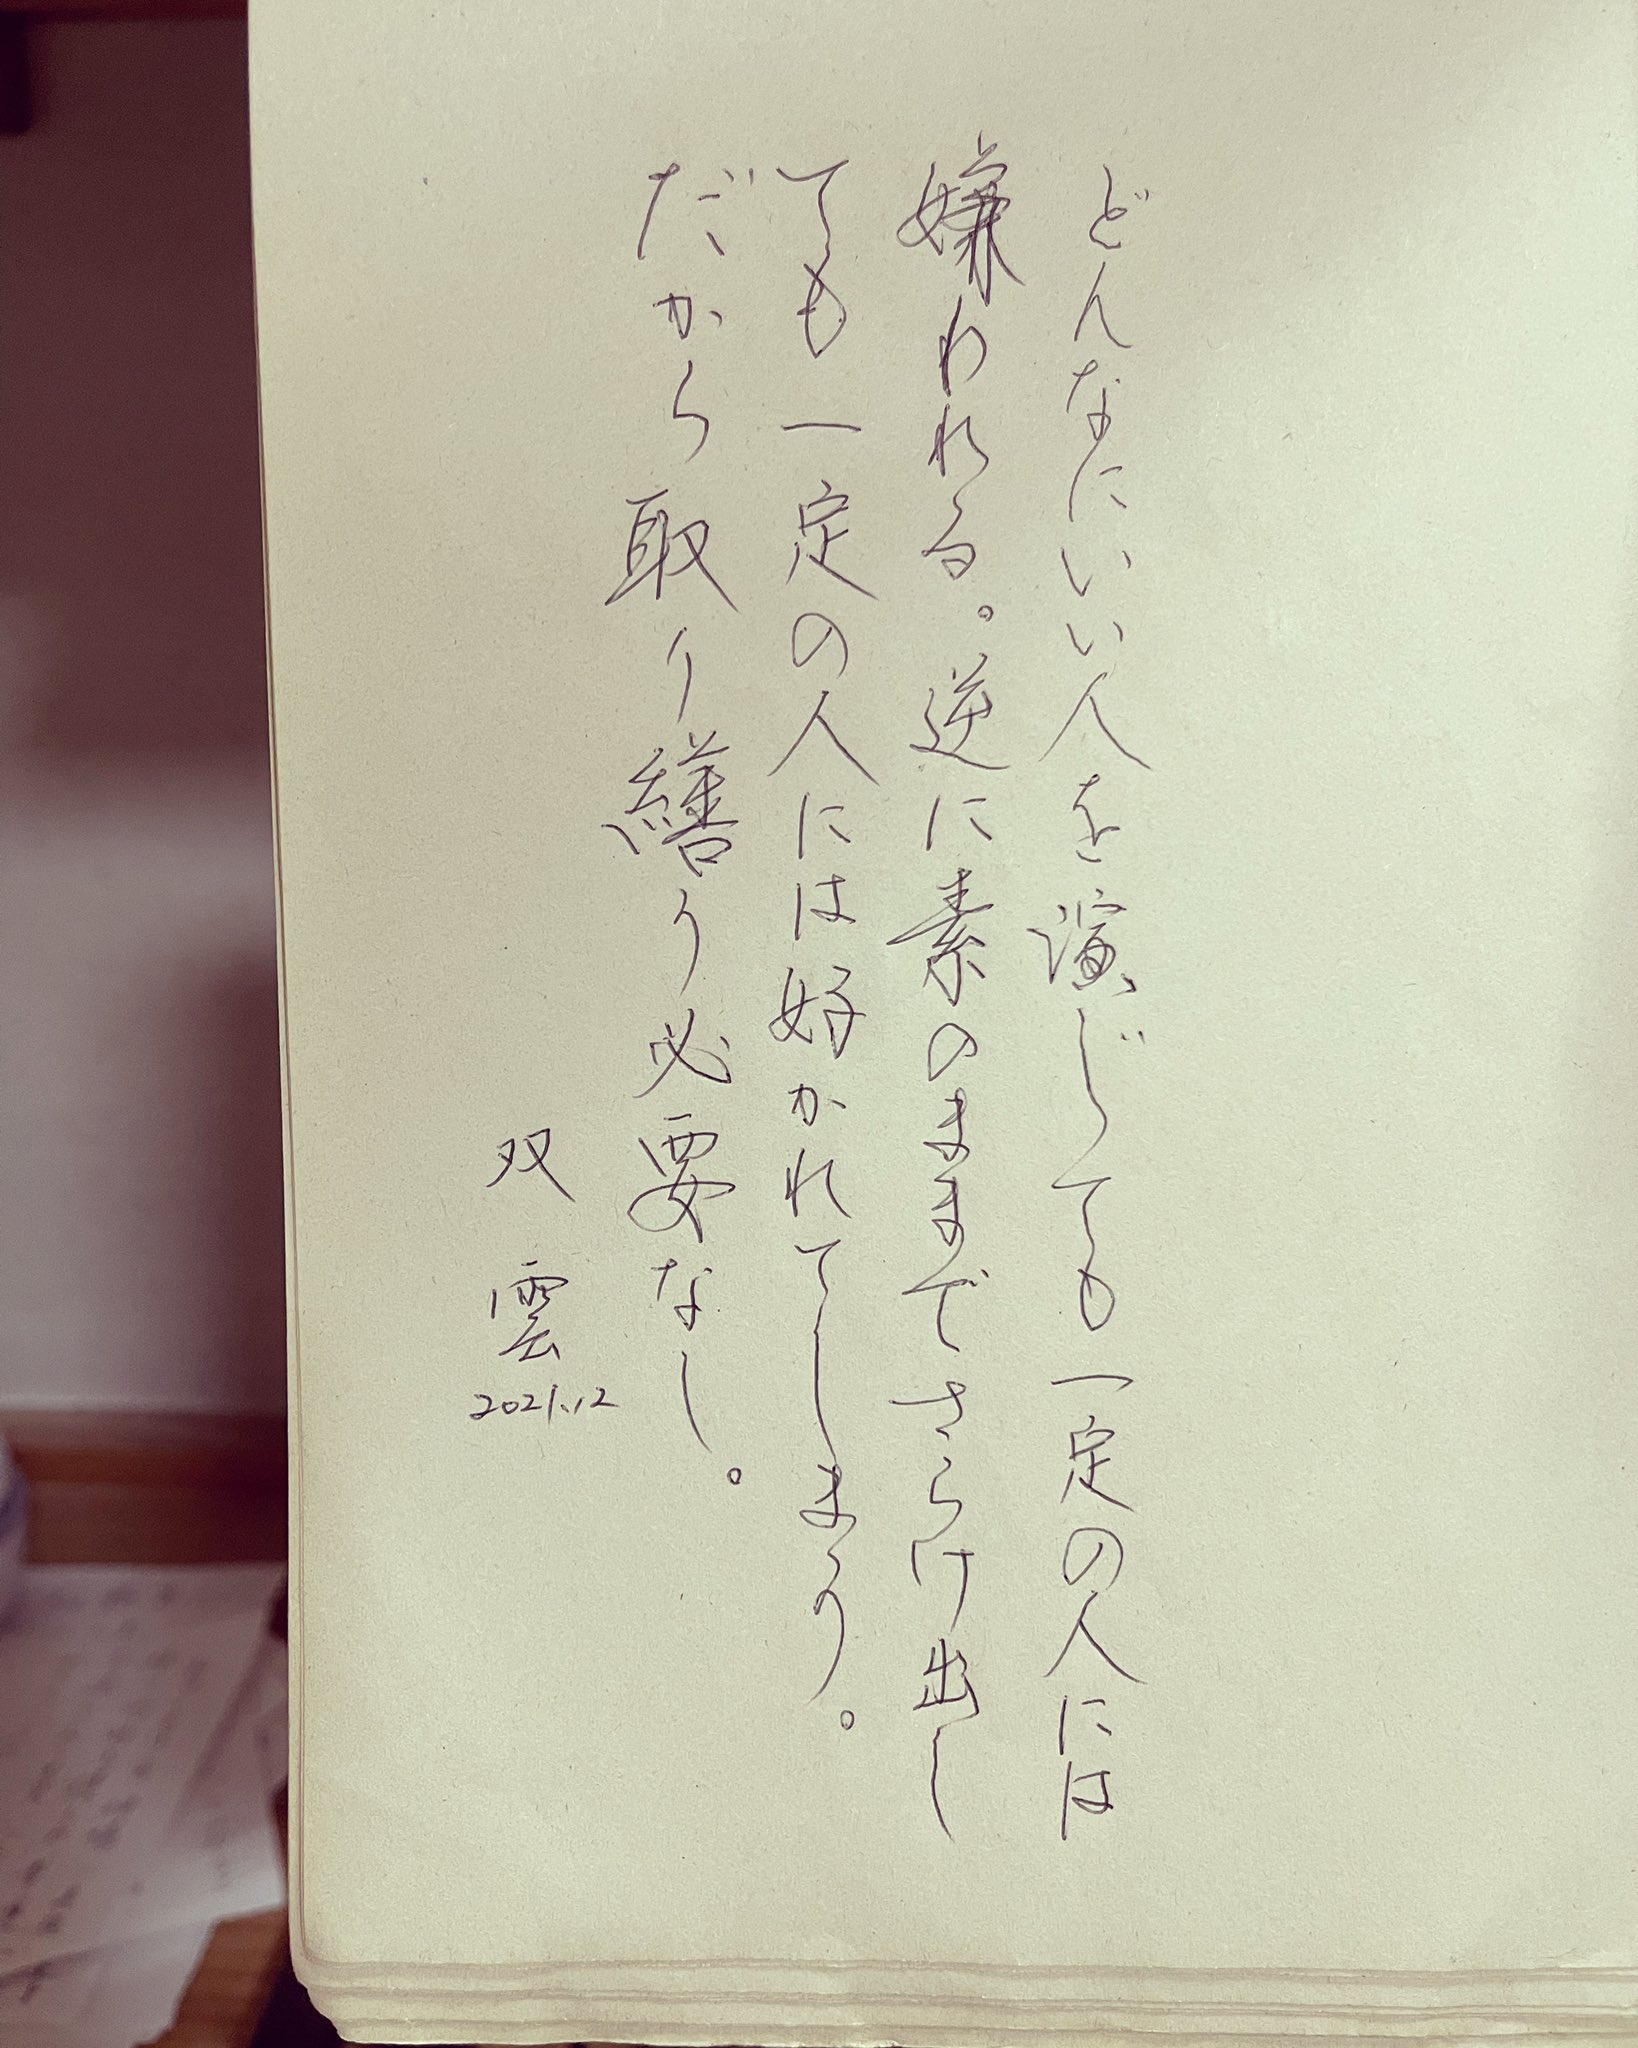 どんなにいい人を演じても一定の人には
嫌われる。逆に素のままでさらけ出し
ても一定の人には好かれてしまう。
だから取り繕う必要なし。
双雲
2021.12